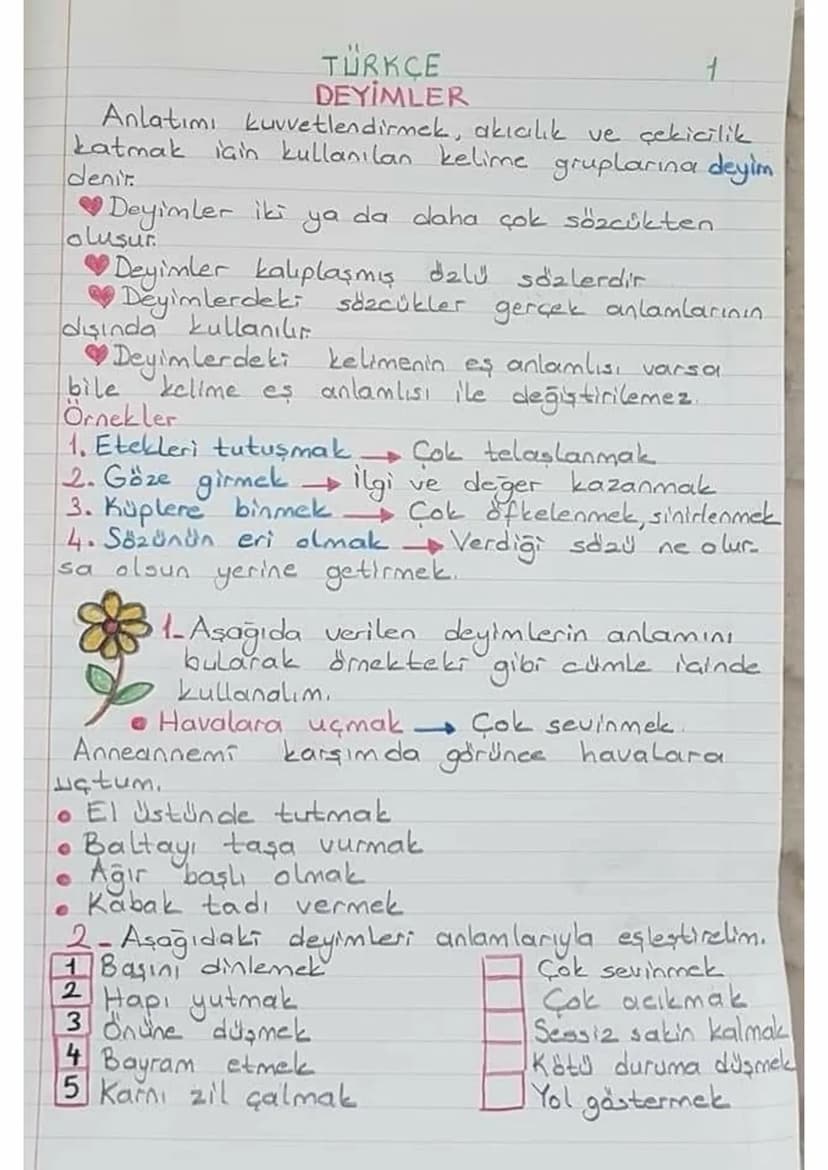 TÜRKÇE 1
DEYİMLER
Anlatımı kuvvetlendirmek, akıcılık ve çekicilik
katmak için kullanılan kelime gruplarına deyim
denir.
Deyimler iki ya da daha çok sözcükten
oluşur.
Deyimler kalıplaşmış özlü sözlerdir
Deyimlerdeki sözcükler gerçek anlamlarının
dışında kullanılır.
Deyimlerdeki kelimenin eş anlamlısı varsa
bile kelime eş anlamlısı ile değiştirilemez.
Örnekler
1. Etekleri tutuşmak → Çok telaşlanmak
2. Göze girmek → İlgi ve değer kazanmak
3. Küplere binmek → Çok öfkelenmek, sinirlenmek
4. Sözünün eri olmak → Verdiği sözü ne olur-
sa olsun yerine getirmek.
1- Aşağıda verilen deyimlerin anlamını
bularak örnekteki gibi cümle içinde
kullanalım.
• Havalara uçmak → Çok sevinmek.
Anneannemi karşımda görünce havalara
uçtum.
• El üstünde tutmak
• Baltayı taşa vurmak
• Ağır başlı olmak
• Kabak tadı vermek
2- Aşağıdaki deyimleri anlamlarıyla eşleştirelim.
1 Başını dinlemek Çok sevinmek
2 Hapı yutmak Çok acıkmak
3 Önüne düşmek Sessiz sakin kalmak
4 Bayram etmek Kötü duruma düşmek
5 Karnı zil çalmak Yol göstermek